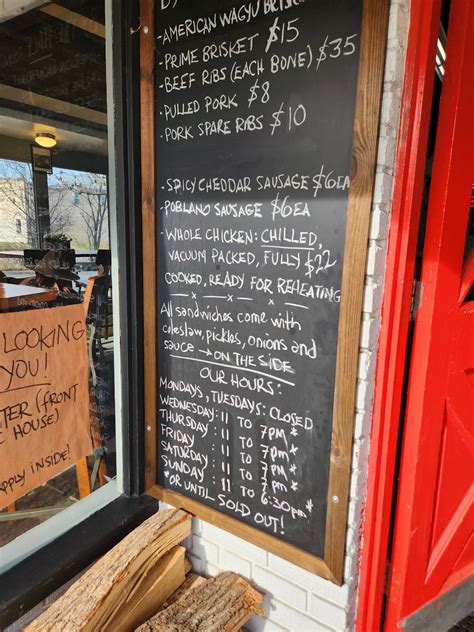 - AMERICAN WAGYU BRISKET
- PRIME BRISKET $15
- BEEF RIBS (EACH BONE) $35
- PULLED PORK $8
- PORK SPARE RIBS $10
- SPICY CHEDDAR SAUSAGE $6EA
- POBLANO SAUSAGE $6EA
- WHOLE CHICKEN: CHILLED,
VACUUM PACKED, FULLY $22
COOKED, READY FOR REHEATING
All sandwiches come with
coleslaw, pickles, onions and
sauce → ON THE SIDE
OUR HOURS:
MONDAYS, TUESDAYS: CLOSED
WEDNESDAY: 11 TO 7PM *
THURSDAY: 11 TO 7PM *
FRIDAY : 11 TO 7PM *
SATURDAY : 11 TO 7PM *
SUNDAY : 11 TO 6:30PM *
*OR UNTIL SOLD OUT!
LOOKING
YOU!
(FRONT
HOUSE)
APPLY INSIDE!